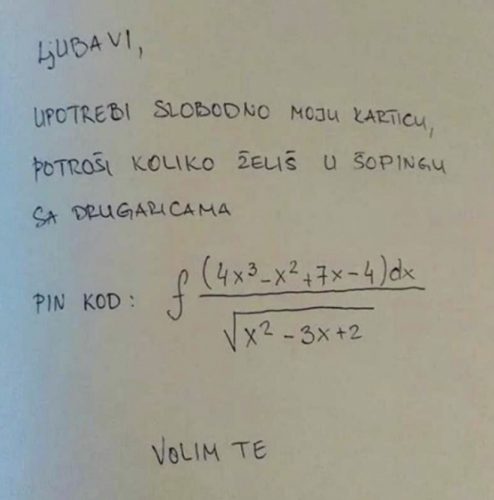 LjUBAVI,
UPOTREBI SLOBODNO MOJU KARTICU,
POTROŠI KOLIKO ŽELIŠ U ŠOPINGU
SA DRUGARICAMA
PIN KOD: ∫ (4x³-x²+7x-4)dx / √x²-3x+2
VOLIM TE